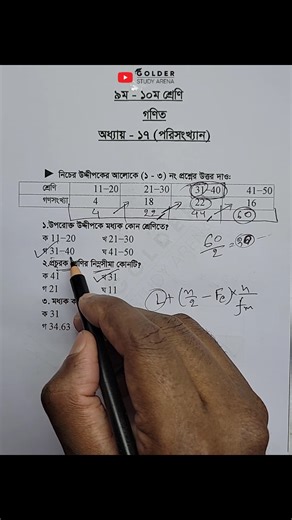 GOLDER
STUDY ARENA
৯ম - ১০ম শ্রেণি
গণিত
অধ্যায় - ১৭ (পরিসংখ্যান)
▶ নিচের উদ্দীপকের আলোকে (১ - ৩) নং প্রশ্নের উত্তর দাও:
শ্রেণি 11–20 21–30 31–40 41–50
গণসংখ্যা 4 18 22 16
4 22 44 60
১.উপরোক্ত উদ্দীপকে মধ্যক কোন শ্রেণিতে?
ক 11–20 খ 21–30
গ 31–40 ঘ 41–50
60/2 = 30
২.প্রচুরক শ্রেণির নিম্নসীমা কোনটি?
ক 41 খ 31
গ 21 ঘ 11
L + (n/2 – Fc) × h/fm
৩. মধ্যক
ক 31
গ 34.63